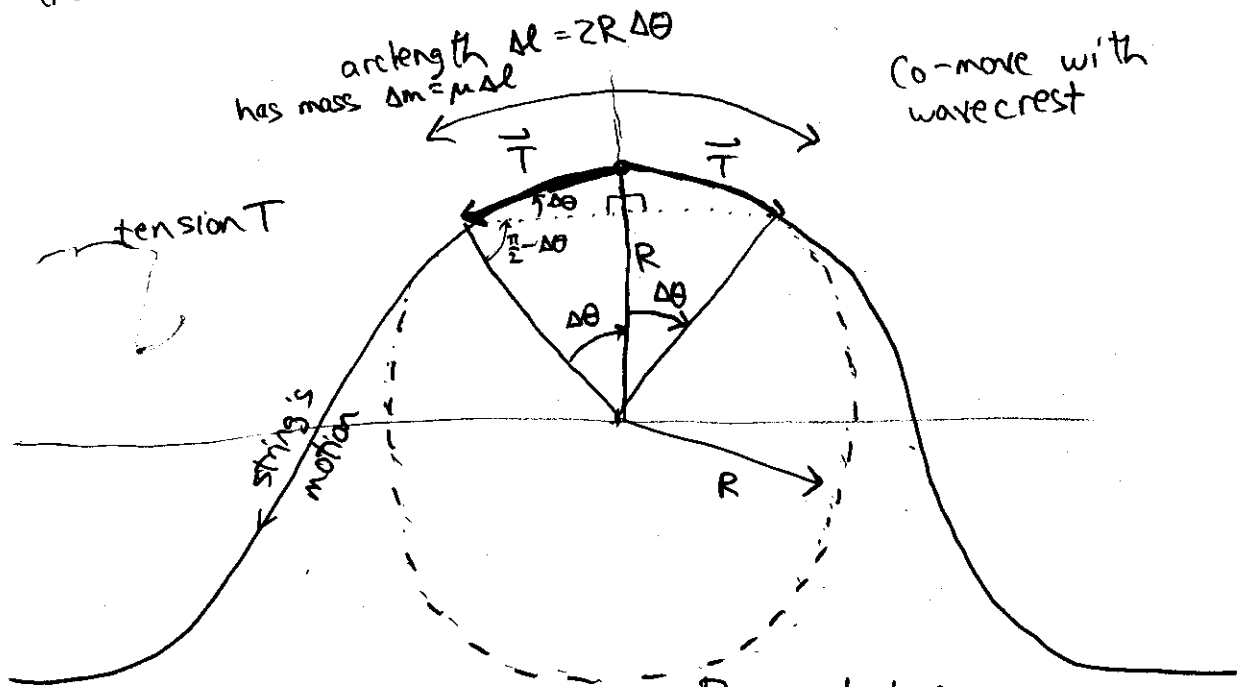 arclength Δl = 2RΔθ
has mass Δm = μΔl
Co-move with
wavecrest
T⃗
T⃗
tension T
Δθ
π/2 - Δθ
R
Δθ
Δθ
string's
motion
R